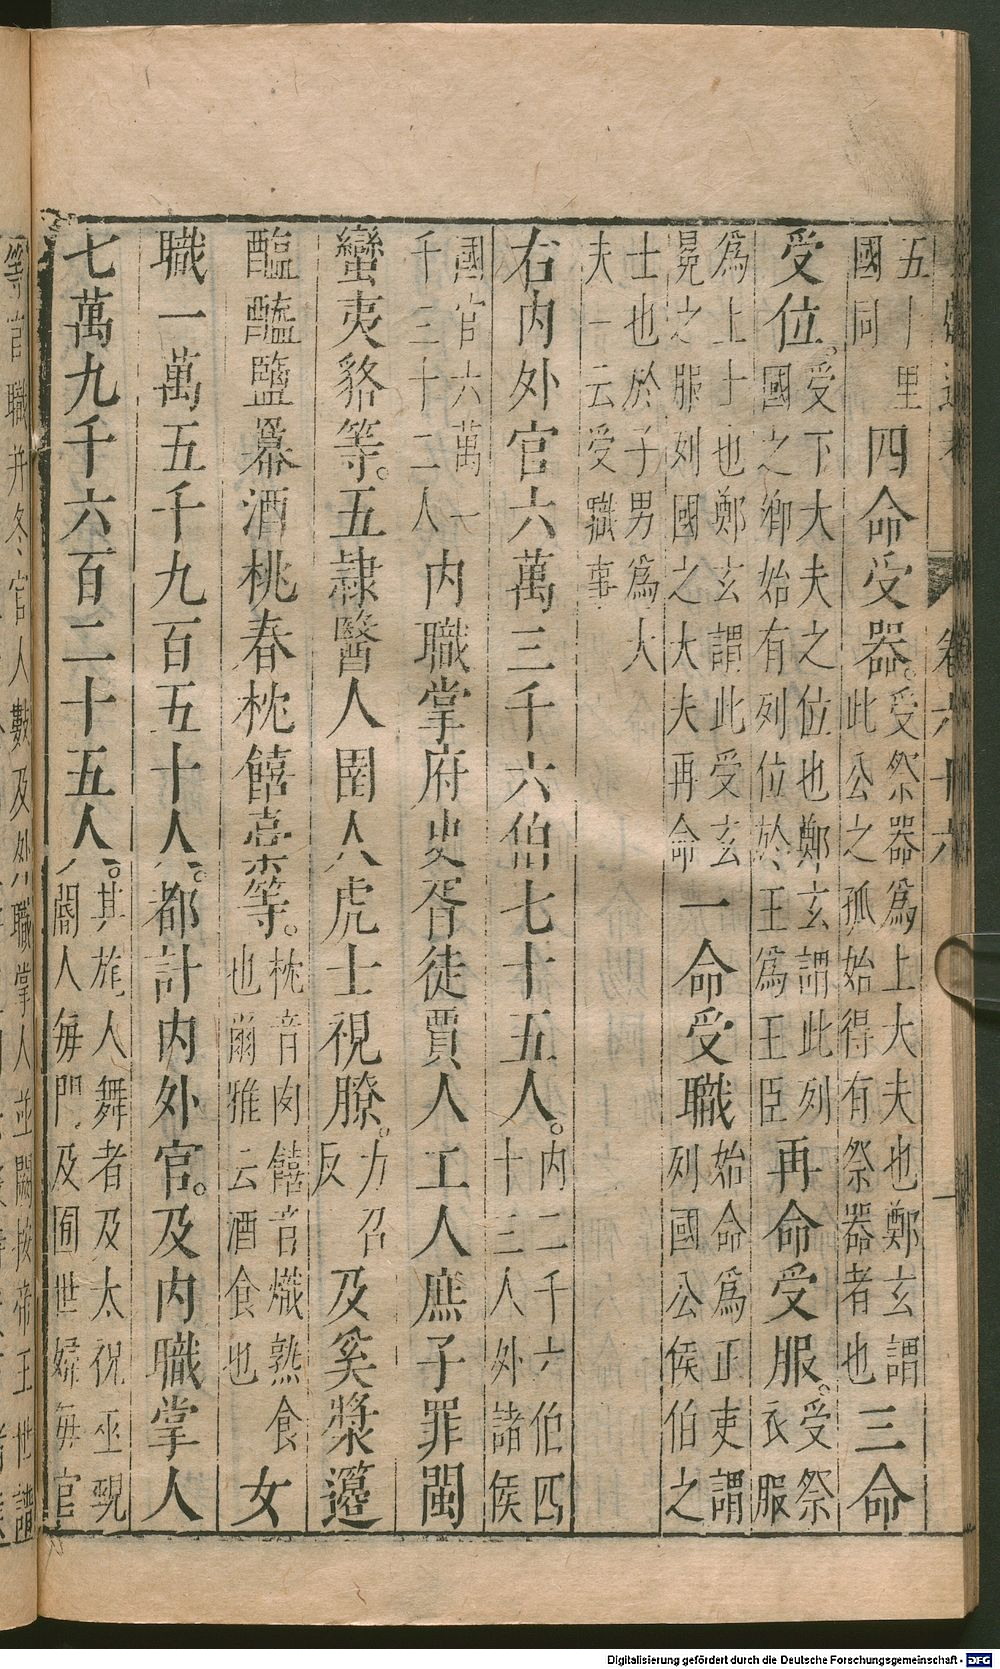 五十里
國同
四命受器。
受祭器爲上大夫也鄭玄謂
此公之孤始得有祭器者也
三命
受位。
受下大夫之位也鄭玄謂此列
國之卿始有列位於王爲王臣
再命受服。
受祭
衣服
爲上士也鄭玄謂此受玄
冕之服列國之大夫再命
一命受職
始命爲正吏謂
列國公侯伯之
士也於子男爲大
夫一云受職事
右內外官六萬三千六伯七十五人。
內二千六伯四
十三人外諸侯
國官六萬一
千三十二人
內職掌府史胥徒賈人工人庶子罪閩
蠻夷貉等。五隸醫人圉人虎士視瞭。
力召
反
及奚漿籩
醢醯鹽冪酒桃舂枕饎稾等。
枕音肉饎音熾熟食
也爾雅云酒食也
女
職一萬五千九百五十人。都計內外官。及內職掌人
七萬九千六百二十五人。
其旄人舞者及太祝巫覡
閽人每門及囿世婦每宮
等官職并冬官人數及外職掌人並闕按帝王世譜
卷六十六
Digitalisierung gefördert durch die Deutsche Forschungsgemeinschaft - DFG